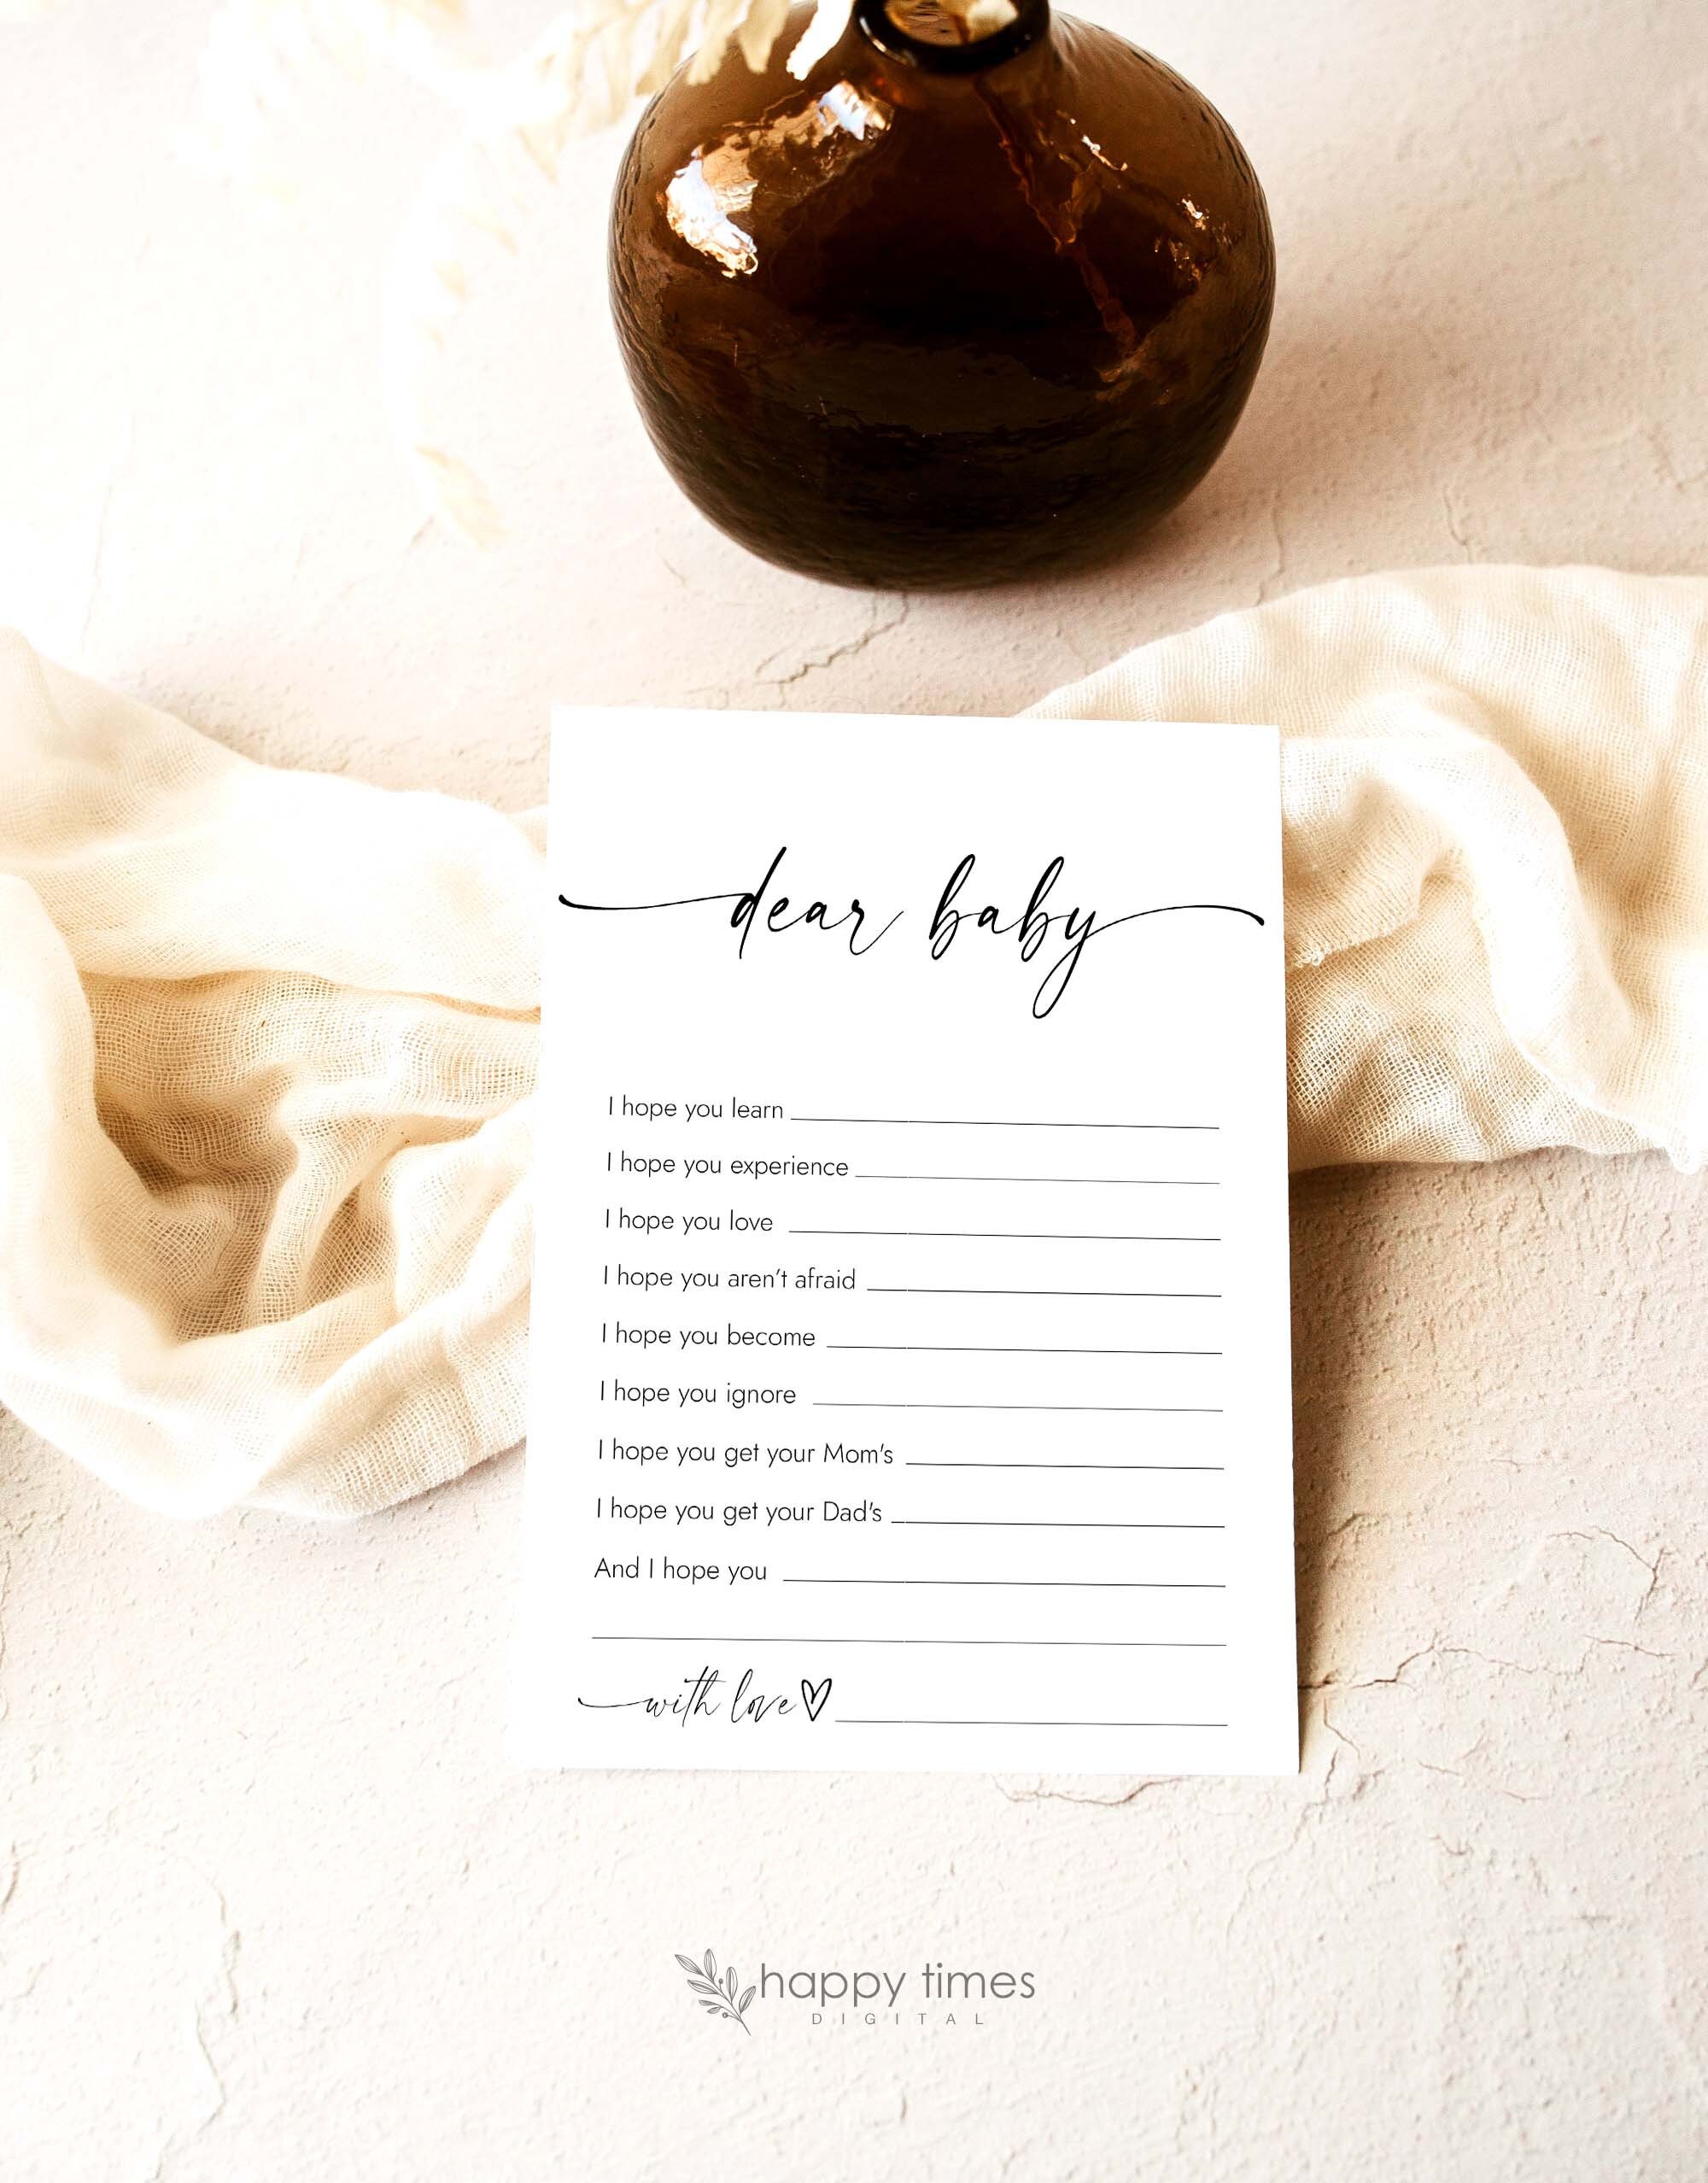 dear baby
I hope you learn
I hope you experience
I hope you love
I hope you aren't afraid
I hope you become
I hope you ignore
I hope you get your Mom's
I hope you get your Dad's
And I hope you
with love
happy times
DIGITAL